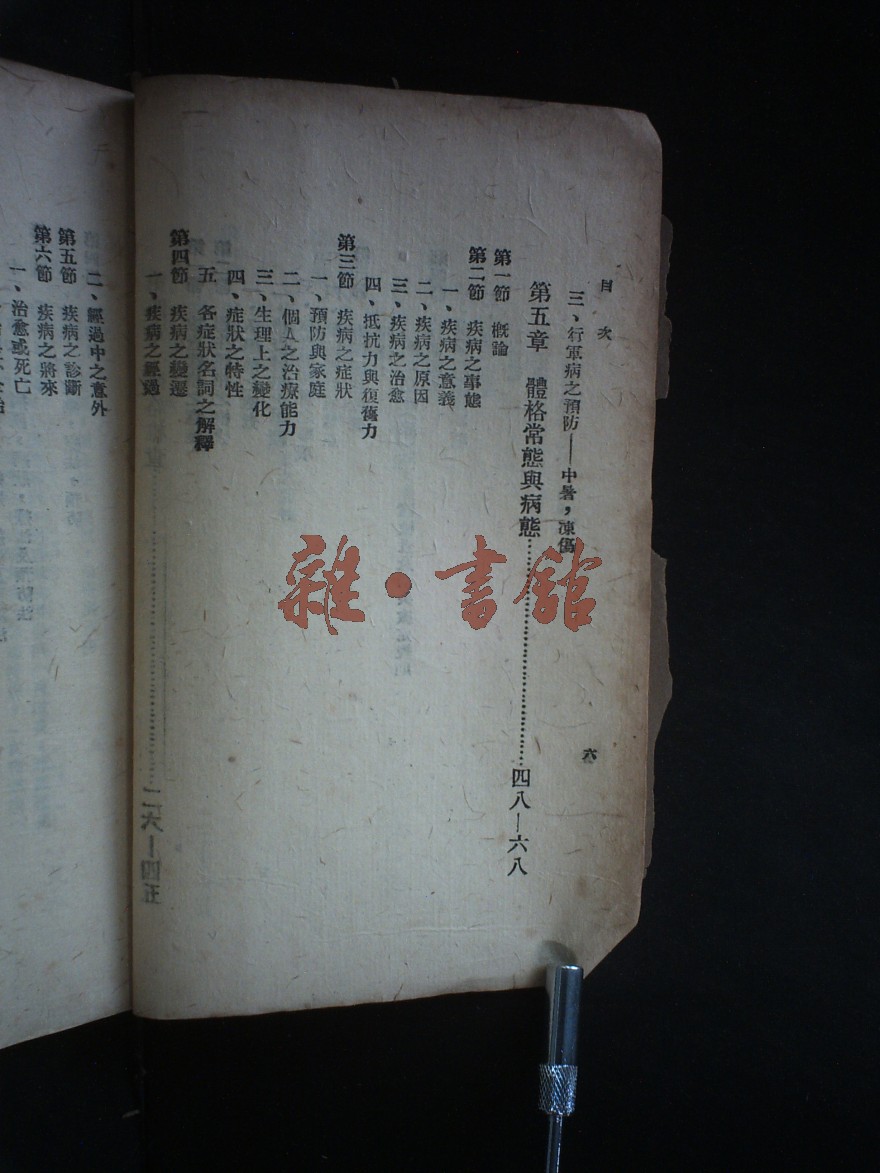 目次
六
三、行軍病之預防——中暑，凍傷
第五章　體格常態與病態……四八—六八
第一節　概論
第二節　疾病之事態
一、疾病之意義
二、疾病之原因
三、疾病之治愈
四、抵抗力與復舊力
第三節　疾病之症狀
一、預防與家庭
二、個人之治療能力
三、生理上之變化
四、症狀之特性
五　各症狀名詞之解釋
第四節　疾病之變遷
一、疾病之經過
二、經過中之意外
第五節　疾病之診斷
第六節　疾病之將來
一、治愈或死亡
雜·書館